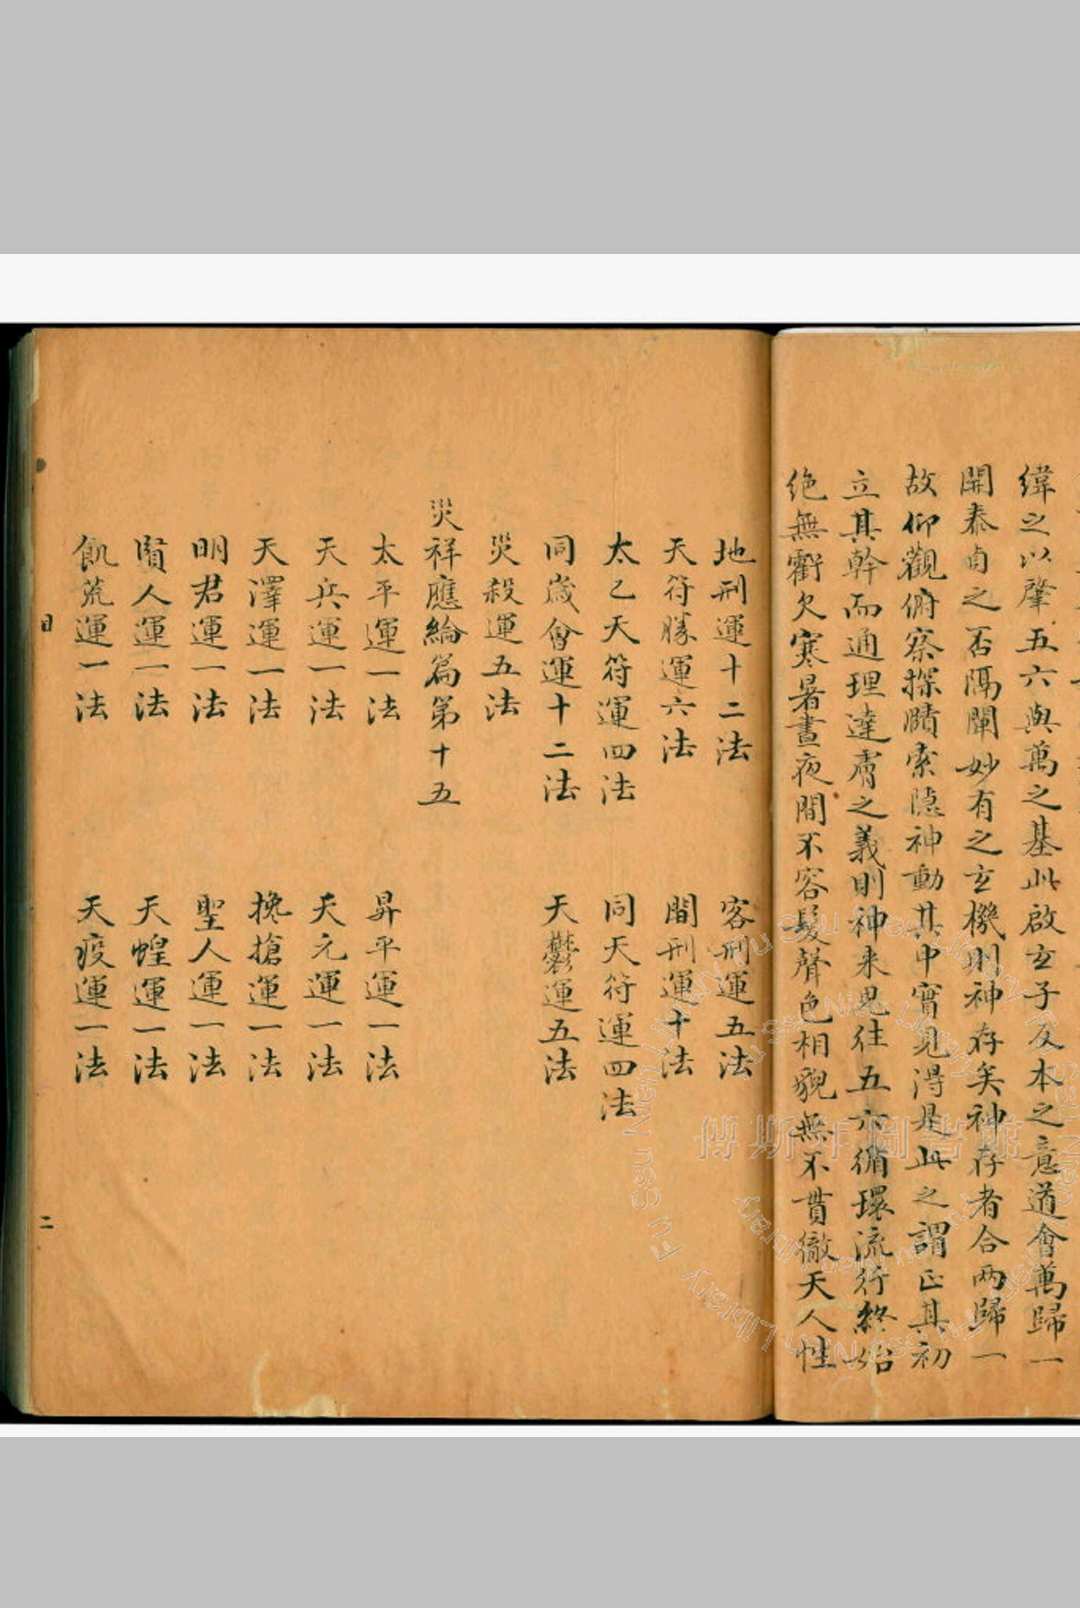 緯之以肇五六與萬之基此啟玄子反本之意道會萬歸一
開泰卣之否隔闡妙有之玄機則神存矣神存者合两歸一
故仰觀俯察探賾索隐神動其中實見得是此之謂正其初
立其幹而通理達膚之義則神来思往五六循環流行終始
绝無虧欠寒暑晝夜間不容髮聲色相貌無不貫徹天人性
地刑運十二法 客刑運五法
天符勝運六法 間刑運十法
太乙天符運四法 同天符運四法
同歲會運十二法 天鬱運五法
災殺運五法
災祥應綸篇第十五
太平運一法 昇平運一法
天兵運一法 天元運一法
天澤運一法 攙搶運一法
明君運一法 聖人運一法
賢人運一法 天蝗運一法
飢荒運一法 天疫運一法
目 二
傅斯年圖書館